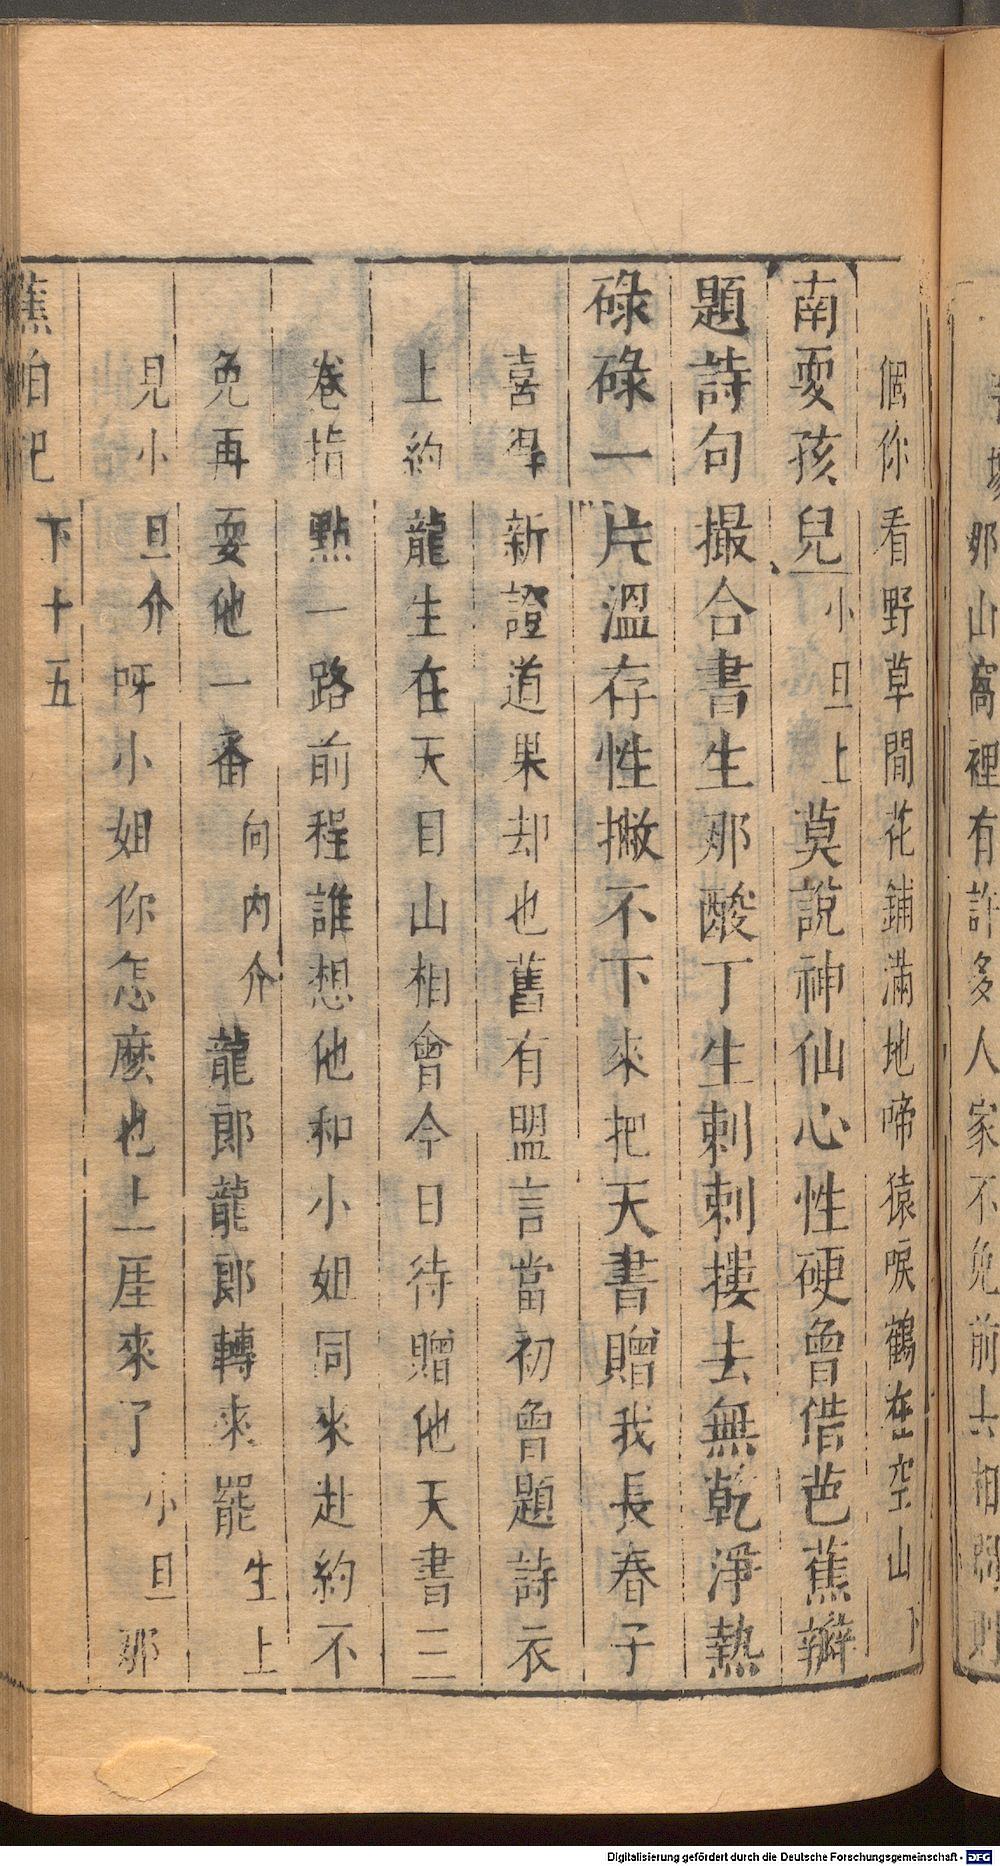 那山窩裡有許多人家不免前去相
個你看野草閒花鋪滿地啼猿唳鶴在空山下
南耍孩兒小旦上莫說神仙心性硬曾借芭蕉瓣
題詩句撮合書生那酸丁生剌剌摟去無乾淨熱
碌碌一片溫存性撇不下來把天書贈我長春子
喜得新證道果却也舊有盟言當初曾題詩衣
上約龍生在天目山相會今日待贈他天書三
卷指點一路前程誰想他和小姐同來赴約不
免再耍他一番向內介龍郎龍郎轉來罷生上
見小旦介呀小姐你怎麽也上厓來了小旦那
蕉帕記 下十五
Digitalisierung gefördert durch die Deutsche Forschungsgemeinschaft - DFG